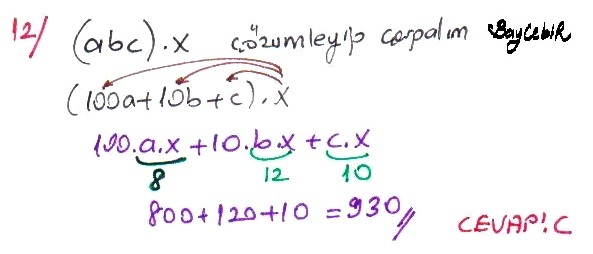 12/ (abc).x çözümleyip çarpalım BayCebiR
(100a+10b+c).x
100.a.x+10.b.x+c.x
8 12 10
800+120+10=930//
CEVAP!C